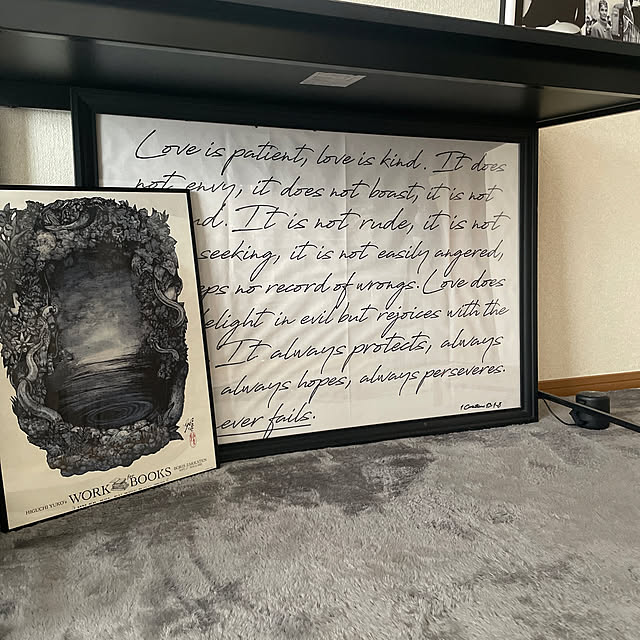 Love is patient, love is kind. It does
not envy, it does not boast, it is not
It is not rude, it is not
seeking, it is not easily angered,
no record of wrongs. Love does
elight in evil but rejoices with the
It always protects, always
always hopes, always perseveres.
ever fails.
HIGUCHI YUKO's WORK BOOKS